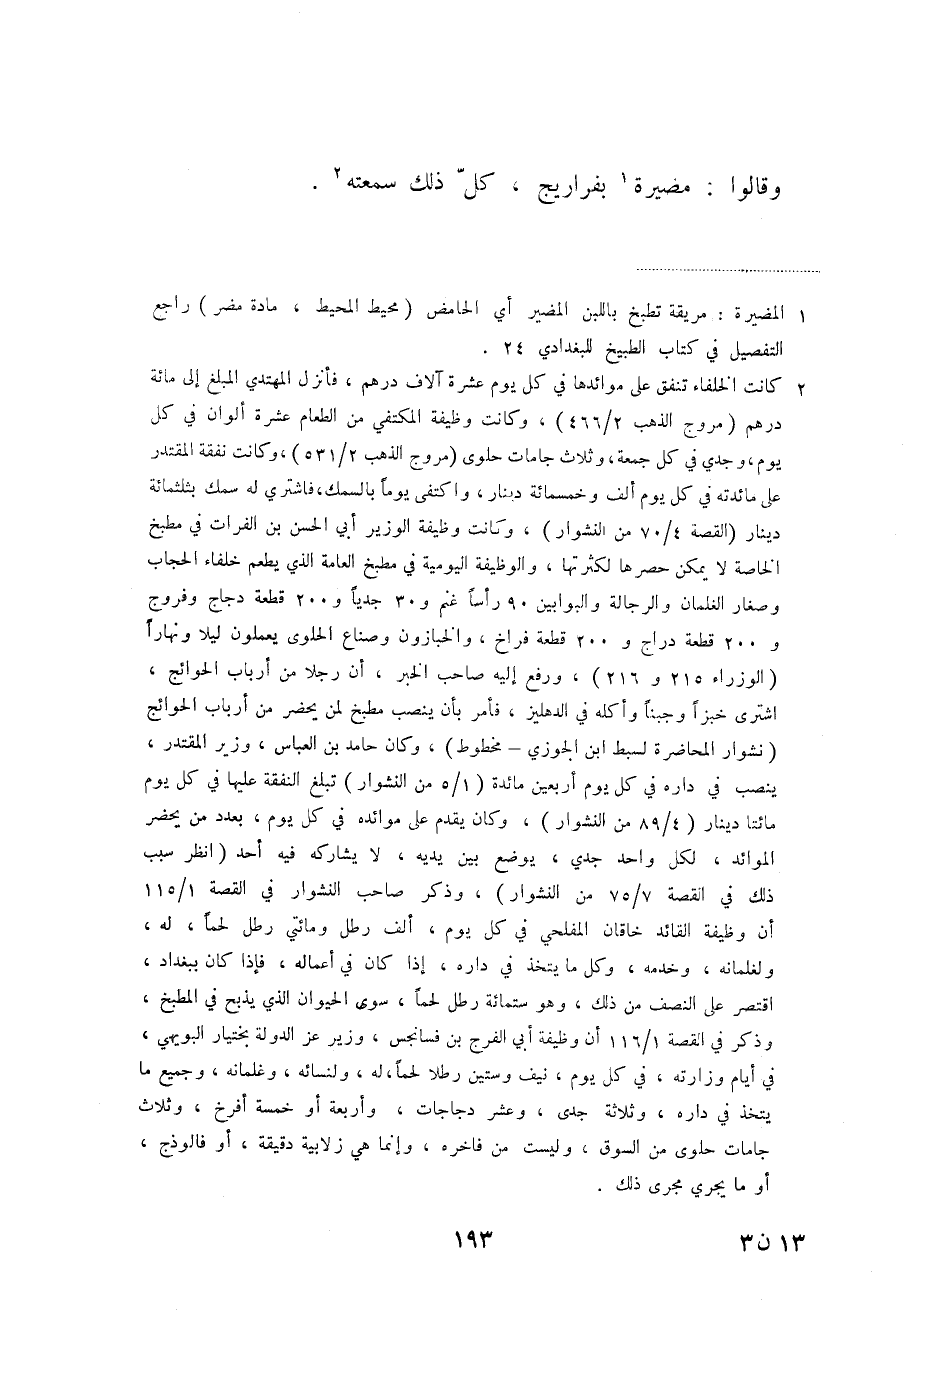 وقالوا : مضيرة ١ بفراريج ، كلّ ذلك سمعته ٢ .
١ المضيرة : مريقة تطبخ باللبن المضير أي الحامض ( محيط المحيط ، مادة مضر ) راجع
التفصيل في كتاب الطبيخ للبغدادي ٢٤ .
٢ كانت الخلفاء تنفق على موائدها في كل يوم عشرة آلاف درهم ، فأنزل المهتدي المبلغ إلى مائة
درهم ( مروج الذهب ٤٦٦/٢ ) ، وكانت وظيفة المكتفي من الطعام عشرة ألوان في كل
يوم، وجدي في كل جمعة، وثلاث جامات حلوى (مروج الذهب ٥٣١/٢) ، وكانت نفقة المقتدر
على مائدته في كل يوم ألف وخمسمائة دينار ، واكتفى يوماً بالسمك، فاشتري له سمك بثلثمائة
دينار (القصة ٧٠/٤ من النشوار ) ، وكانت وظيفة الوزير أبي الحسن بن الفرات في مطبخ
الخاصة لا يمكن حصرها لكثرتها ، والوظيفة اليومية في مطبخ العامة الذي يطعم خلفاء الحجاب
وصغار الغلمان والرجالة والبوابين ٩٠ رأساً غنم و٣٠ جدياً و ٢٠٠ قطعة دجاج وفروج
و ٢٠٠ قطعة دراج و ٢٠٠ قطعة فراخ ، والخبازون وصناع الحلوى يعملون ليلا ونهاراً
( الوزراء ٢١٥ و ٢١٦ ) ، ورفع إليه صاحب الخبر ، أن رجلا من أرباب الحوائج ،
اشترى خبزاً وجبناً وأكله في الدهليز ، فأمر بأن ينصب مطبخ لمن يحضر من أرباب الحوائج
( نشوار المحاضرة لسبط ابن الجوزي – مخطوط ) ، وكان حامد بن العباس ، وزير المقتدر ،
ينصب في داره في كل يوم أربعين مائدة ( ٥/١ من النشوار ) تبلغ النفقة عليها في كل يوم
مائتا دينار ( ٨٩/٤ من النشوار ) ، وكان يقدم على موائده في كل يوم ، بعدد من يحضر
الموائد ، لكل واحد جدي ، يوضع بين يديه ، لا يشاركه فيه أحد ( انظر سبب
ذلك في القصة ٧٥/٧ من النشوار ) ، وذكر صاحب النشوار في القصة ١١٥/١
أن وظيفة القائد خاقان المفلحي في كل يوم ، ألف رطل ومائتي رطل لحماً ، له ،
ولغلمانه ، وخدمه ، وكل ما يتخذ في داره ، إذا كان في أعماله ، فإذا كان ببغداد ،
اقتصر على النصف من ذلك ، وهو ستمائة رطل لحماً ، سوى الحيوان الذي يذبح في المطبخ ،
وذكر في القصة ١١٦/١ أن وظيفة أبي الفرج بن فسانجس ، وزير عز الدولة بختيار البويهي ،
في أيام وزارته ، في كل يوم ، نيف وستين رطلا لحماً، له ، ولنسائه ، وغلمانه ، وجميع ما
يتخذ في داره ، وثلاثة جدى ، وعشر دجاجات ، وأربعة أو خمسة أفرخ ، وثلاث
جامات حلوى من السوق ، وليست من فاخره ، وإنما هي زلابية دقيقة ، أو فالوذج ،
أو ما يجري مجرى ذلك .
١٣ ن ٣
١٩٣